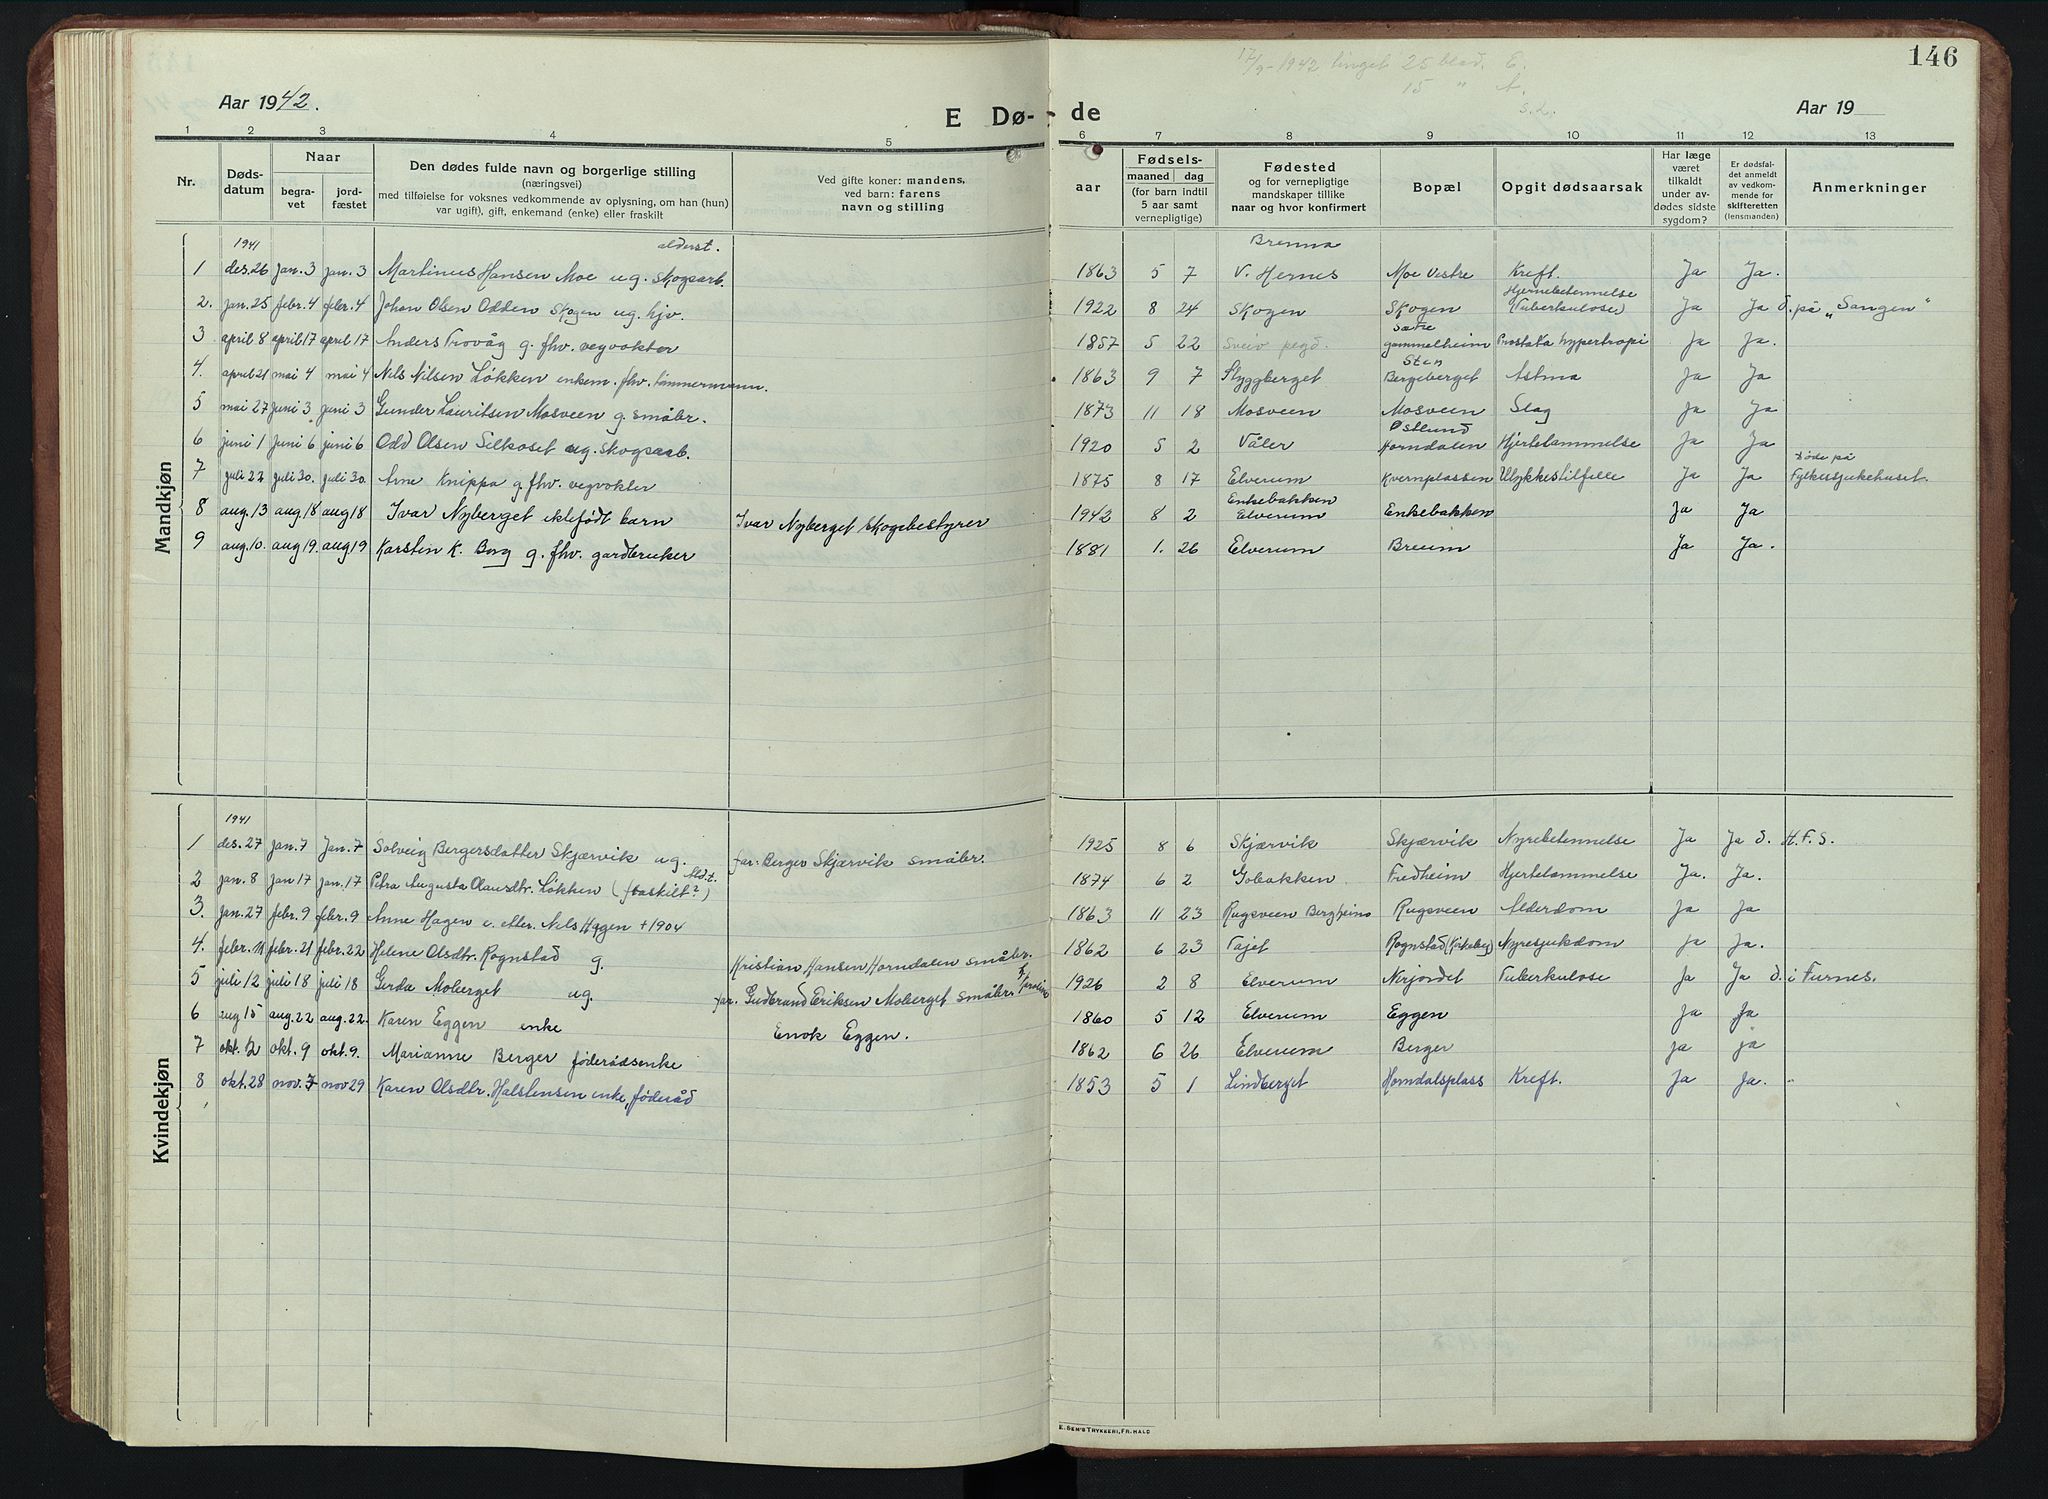 146
17/9-1942 25 blad. E.
15 " A.
Aar 1942.
E Dø- de
Aar 19
1 2 3 4 5 6 7 8 9 10 11 12 13
Nr.
Døds-datum
Naar
begra-vet
jord-fæstet
Den dødes fulde navn og borgerlige stilling
(næringsvei)
med tilføielse for voksnes vedkommende av oplysning, om han (hun)
var ugift), gift, enkemand (enke) eller fraskilt
Ved gifte koner: mandens,
ved barn: farens
navn og stilling
aar
Fødsels-
maaned dag
(for barn indtil
5 aar samt
vernepligtige)
Fødested
og for vernepligtige
mandskaper tillike
naar og hvor konfirmert
Bopæl
Opgit dødsaarsak
Har læge
været
tilkaldt
under av-
dødes sidste
sygdom?
Er dødsfal-
det anmeldt
av vedkom-
mende for
skifteretten
(lensmanden)
Anmerkninger
Mandkjøn
1941 alderst. Brenna
1 des. 26 jan. 3 jan. 3 Martinus Hansen Moe ug. skogsarb. 1863 5 7 V. Hernes Moe vestre Kreft. Ja Ja.
Hjernebetennelse
2. jan. 25 febr. 4 febr. 4 Johan Olsen Odden Skogen ug. hjv. 1922 8 24 Skogen Skogen (Tuberkulose) Ja Ja d. på „Sangen"
Sætre
3 april 8 april 17 april 17 Anders Trovåg g. fhv. vegvokter 1857 5 22 Sveio pegd. gammelheim Prostata hypertropi Ja Ja.
Sten
4. april 21 mai 4 mai 4 Nils Nilsen Løkken enkem. fhv. tømmermann. 1863 9 7 Styggberget Bergeberget Astma Ja Ja
5 mai 27 juni 3 juni 3 Gunder Lauritsen Mosveen g. småbr. 1873 11 18 Mosveen Mosveen Slag Ja Ja
Østlund
6 juni 1 juni 6 juni 6 Odd Olsen Silkoset ug. skogsarb. 1920 5 2 Våler Horndalen Hjertelammelse Ja Ja
Døde på
7 juli 22 juli 30. juli 30. Arne Knippa g. fhv. vegvokter 1875 8 17 Elverum Kvernplassen Ulykkestilfelle Ja Ja Fylkessjukehuset.
Enkebakken
8 aug. 13 aug 18 aug 18 Ivar Nyberget ektefødt barn Ivar Nyberget skogbestyrer 1942 8 2 Elverum Enkebakken Ja Ja
9 aug. 10. aug 19. aug 19 Karsten K. Borg g. fhv. gardbruker 1881 1. 26 Elverum Breum Ja Ja.
Kvindekjøn
1941
1 des. 27 jan. 7 Jan. 7 Solveig Bergersdatter Skjærvik ug. far: Berger Skjærvik småbr. 1925 8 6 Skjærvik Skjærvik Nyrebetennelse Ja Ja d. H.F.S.
2 jan. 8 jan 17 jan. 17 Petra Augusta Olausdtr. Løkken (fraskilt?) 1874 6 2 Gobakken Fredheim Hjertelammelse Ja. Ja.
3. jan. 27 febr. 9 febr. 9 Anne Hagen e. etter. Nils Hagen + 1904 1863 11 23 Rugsveen Bergheino Rugsveen Alderdom Ja Ja
4. febr. 11 febr. 21 febr. 22 Helene Olsdtr. Rognstad g. Kristian Hansen Horndalen småbr. 1862 6 23 Tajet Rognstad (Kirkeby) Nyresjukdom Ja Ja.
5 juli 12 juli 18 juli 18 Gerda Moberget ug. far. Gudbrand Eriksen Moberget småbr. 1926 2 8 Elverum Nirjordet Tuberkulose Ja Ja d. i Furnes.
6 aug 15 aug. 22 aug. 22. Karen Eggen enke Enok Eggen. 1860 5 12 Elverum Eggen Ja Ja
7 okt. 2 okt. 9 okt. 9. Marianne Berger føderådsenke 1862 6 26 Elverum Berger ja ja
8 okt. 28 nov. 7 nov 29 Karen Olsdtr. Halstensen enke, føderåd 1853 5 1 Lindberget Horndalsplass Kreft. Ja Ja.
E. SEM'S TRYKKERI, FR.HALD